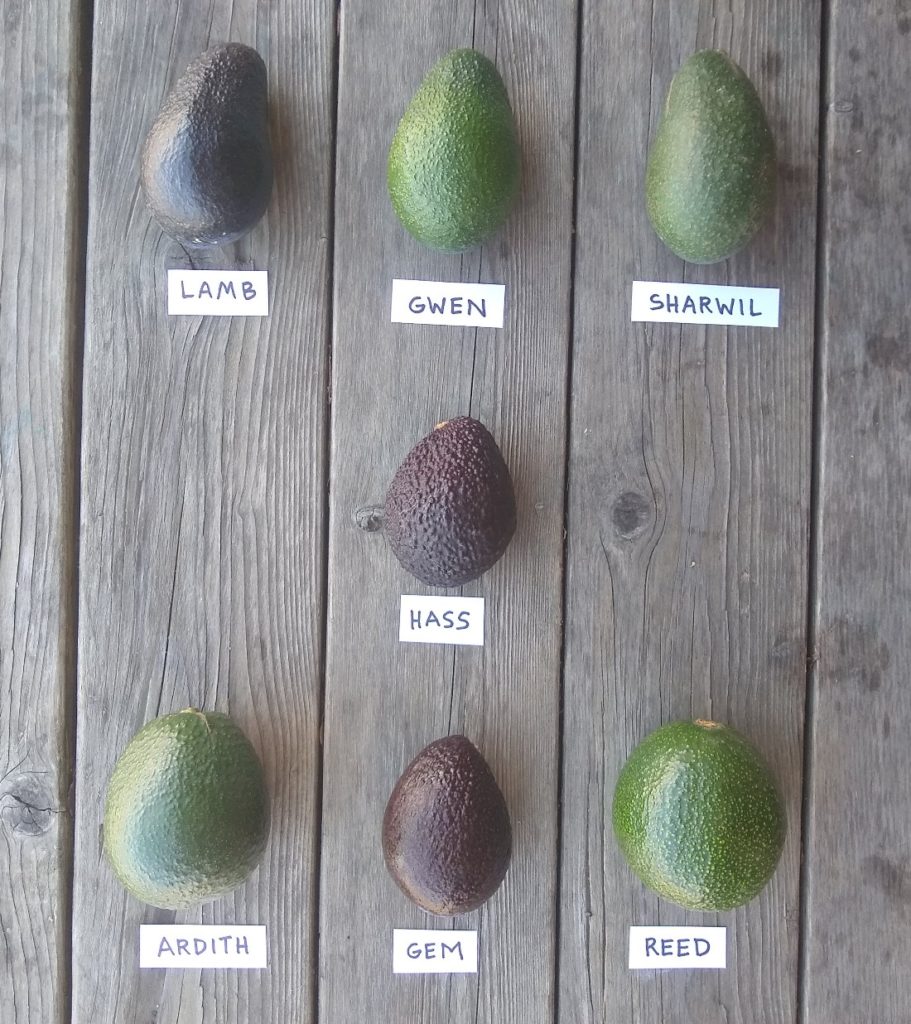 LAMB
GWEN
SHARWIL
HASS
ARDITH
GEM
REED